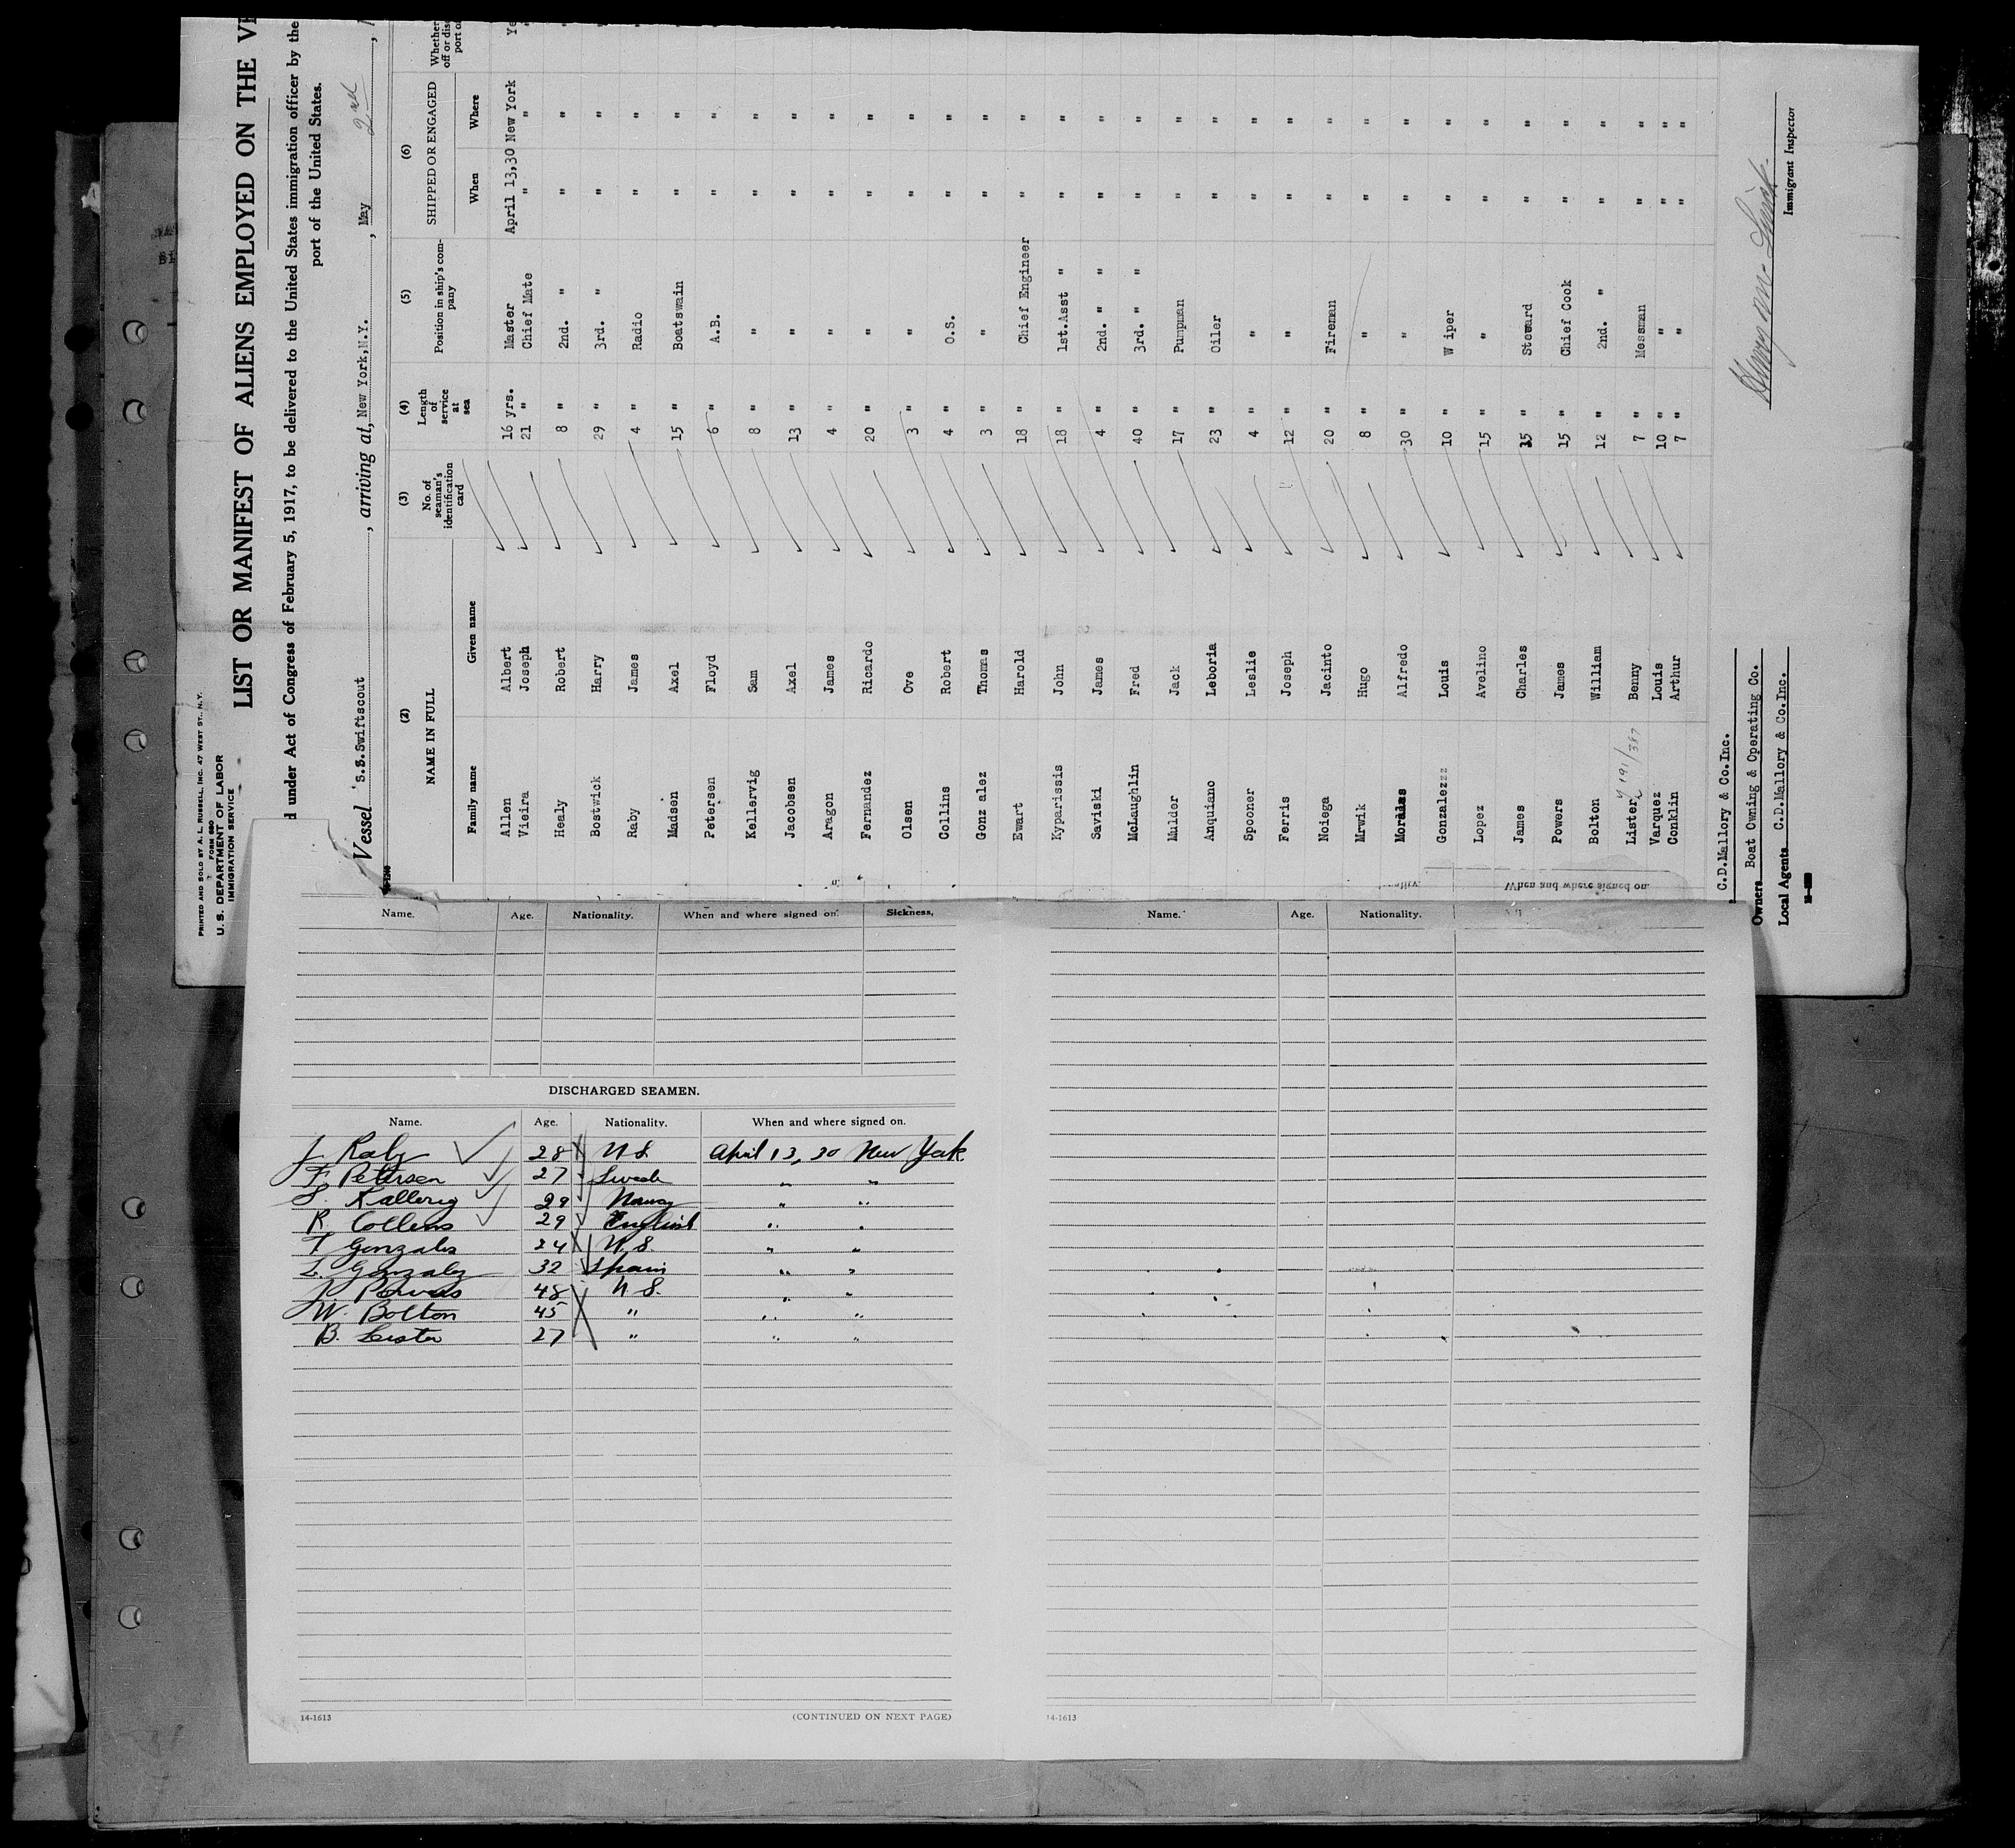 PRINTED AND SOLD BY A. L. RUSSELL, INC. 47 WEST ST., N.Y.
FORM 680
U. S. DEPARTMENT OF LABOR
IMMIGRATION SERVICE
LIST OR MANIFEST OF ALIENS EMPLOYED ON THE
d under Act of Congress of February 5, 1917, to be delivered to the United States immigration officer by the
port of the United States.
Vessel S.S.Swiftscout, arriving at, New York,N.Y., May 2nd,
(2) NAME IN FULL (3) No. of seaman's identification card (4) Length of service at sea (5) Position in ship's company (6) SHIPPED OR ENGAGED Whether
Family name Given name When Where
Allen Albert 16 yrs. Master April 13,30 New York
Vieira Joseph 21 " Chief Mate " "
Healy Robert 8 " 2nd. " " "
Bostwick Harry 29 " 3rd. " " "
Raby James 4 " Radio " "
Madsen Axel 15 " Boatswain " "
Petersen Floyd 6 " A.B. " "
Kellervig Sam 8 " " " "
Jacobsen Axel 13 " " " "
Aragon James 4 " " " "
Fernandez Ricardo 20 " " " "
Olsen Ove 3 " " " "
Collins Robert 4 " O.S. " "
Gonz alez Thomas 3 " " " "
Ewart Harold 18 " Chief Engineer " "
Kyparissis John 18 " 1st.Asst " " "
Saviski James 4 " 2nd. " " " "
McLaughlin Fred 40 " 3rd. " " " "
Mulder Jack 17 " Pumpman " "
Anquiano Leboria 23 " Oiler " "
Spooner Leslie 4 " " " "
Ferris Joseph 12 " " " "
Noiega Jacinto 20 " Fireman " "
Mrwik Hugo 8 " " " "
Morales Alfredo 30 " " " "
Gonzalezzz Louis 10 " W iper " "
Lopez Avelino 15 " " " "
James Charles 35 " Steward " "
Powers James 15 " Chief Cook " "
Bolton William 12 " 2nd. " " "
Lister Benny 7 " Messman " "
Varquez Louis 10 " " " "
Conklin Arthur 7 " " " "
C.D.Mallory & Co.Inc.
Owners Boat Owning & Operating Co.
Local Agents C.D.Mallory & Co.Inc.
Immigrant Inspector
When and where signed on.
Name. Age. Nationality. When and where signed on. Sickness.
Name. Age. Nationality.
DISCHARGED SEAMEN.
Name. Age. Nationality. When and where signed on.
J. Raby 28 U S. April 13, 30 New York
F. Petersen 27 Swede " "
S. Kallervig 29 Norway " "
R. Collens 29 English " "
T Gonzales 24 U. S. " "
L. Gonzalez 32 Spain " "
J Powers 48 U S. " "
W. Bolton 45 " " "
B. Lister 27 " " "
14-1613
(CONTINUED ON NEXT PAGE)
14-1613